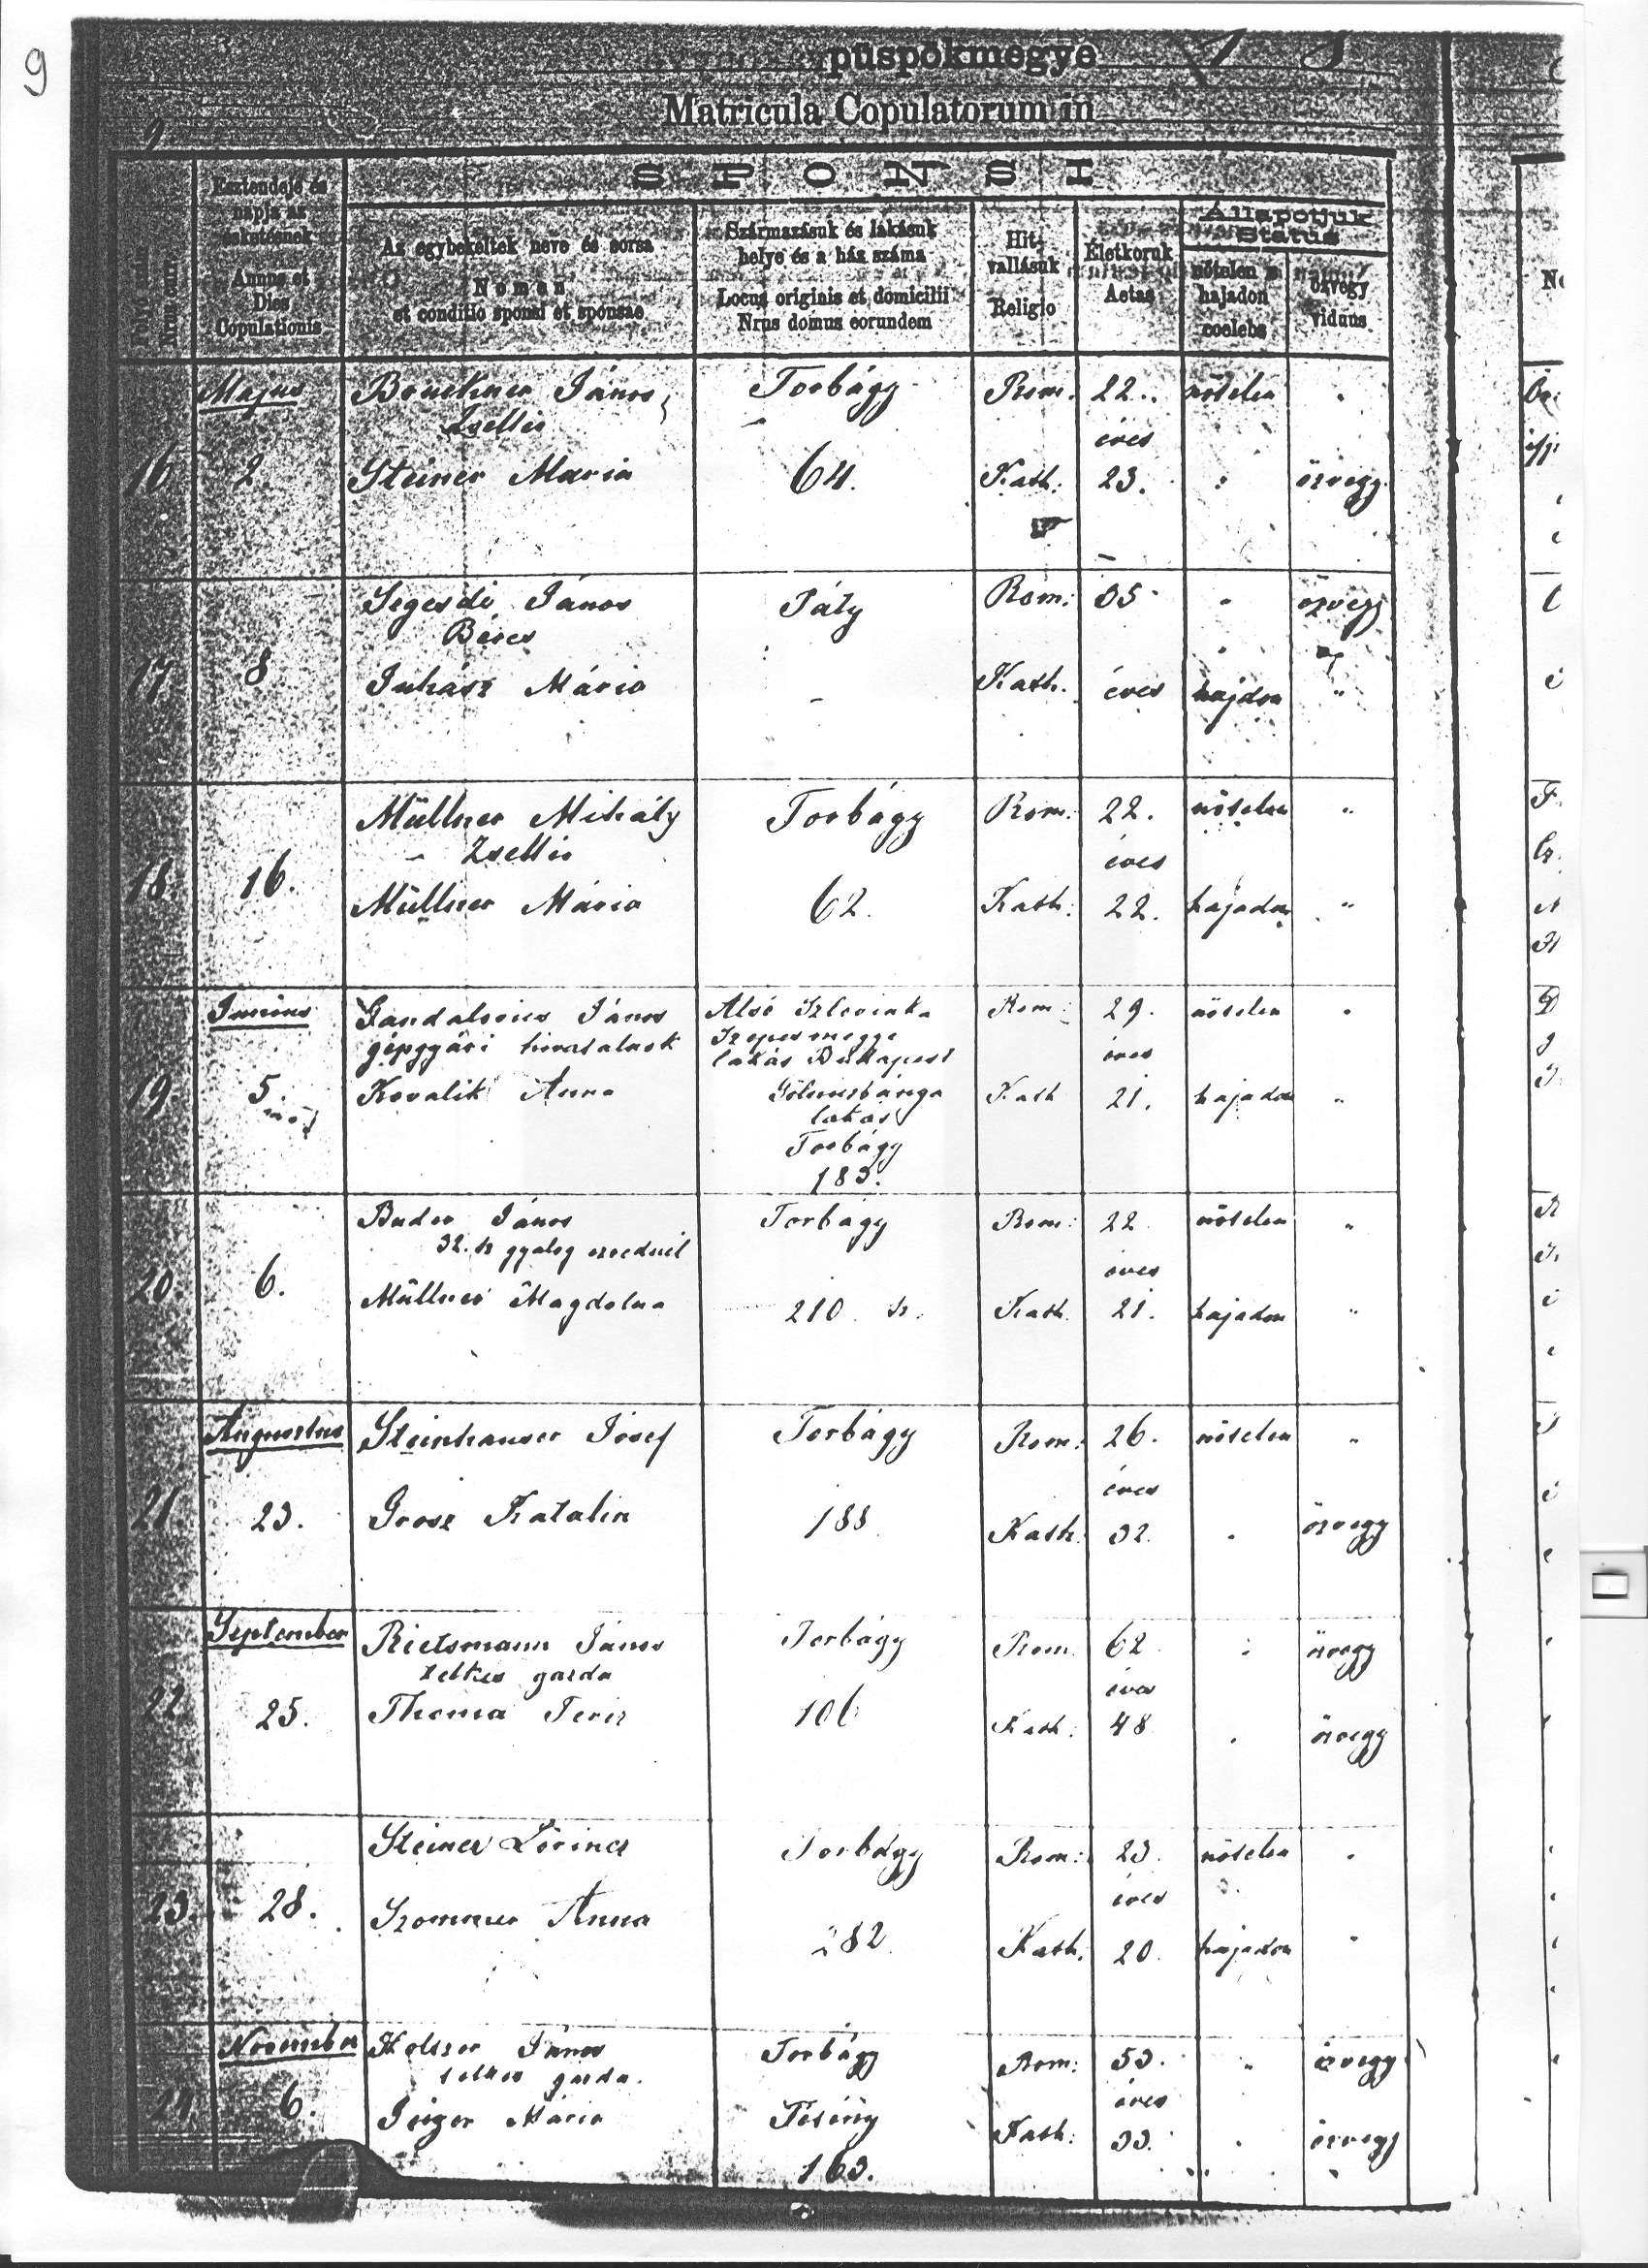 9
püspökmegye
Matricula Copulatorum in
9
SPONSI
Folyó szám
Nrus curr.
Esztendeje és
napja az
esketésnek
Annus et
Dies
Copulationis
Az egybekeltek neve és sorsa
Nomen
et conditio sponsi et sponsae
Származásuk és lakásuk
helye és a ház száma
Locus originis et domicilii
Nrus domus eorundem
Hit-
vallásuk
Religio
Életkoruk
Aetas
Állapotjuk
Status
nőtelen s
hajadon
coelebs
özvegy
viduus
Majus
16 2.
Bruckner János Torbágy Rom. 22. nőtelen
Zsellér
éves
Steiner Maria 64. Kath. 23. özvegy
17 8
Szegesdi János Páty Rom: 35 özvegy
Béres
Juhász Mária Kath. éves hajdon
18 16.
Müllner Mihály Torbágy Rom: 22. nőtelen
Zsellér
éves
Müllner Mária 62. Kath: 22. hajadon
Junius
19 5.
János Alsó Szlovinka Rom: 29. nőtelen
gépgyári hivatalnok Szepesmegye
lakás Budapest
éves
Kovalik Anna Gölniczbánya Kath 21. hajadon
lakás
Torbágy
183.
20. 6.
Bader János Torbágy Rom: 22 nőtelen
32. gyalog ezrednél
éves
Müllner Magdolna 210. Kath. 21. hajadon
Augusztus
21. 23.
Steinhauser József Torbágy Rom: 26. nőtelen
éves
Grosz Katalin 188. Kath. 32. özvegy
September
22 25.
Rietsmann János Torbágy Rom. 62 özvegy
telkes gazda
éves
Thoma Teréz 106 Kath. 48 özvegy
23. 28.
Steiner Lőrincz Torbágy Rom: 23. nőtelen
éves
Szommer Anna 282. Kath. 20. hajadon
November
24. 6.
János Torbágy Rom: 53. özvegy
telkes gazda.
éves
Mária Kath: 33. özvegy
163.